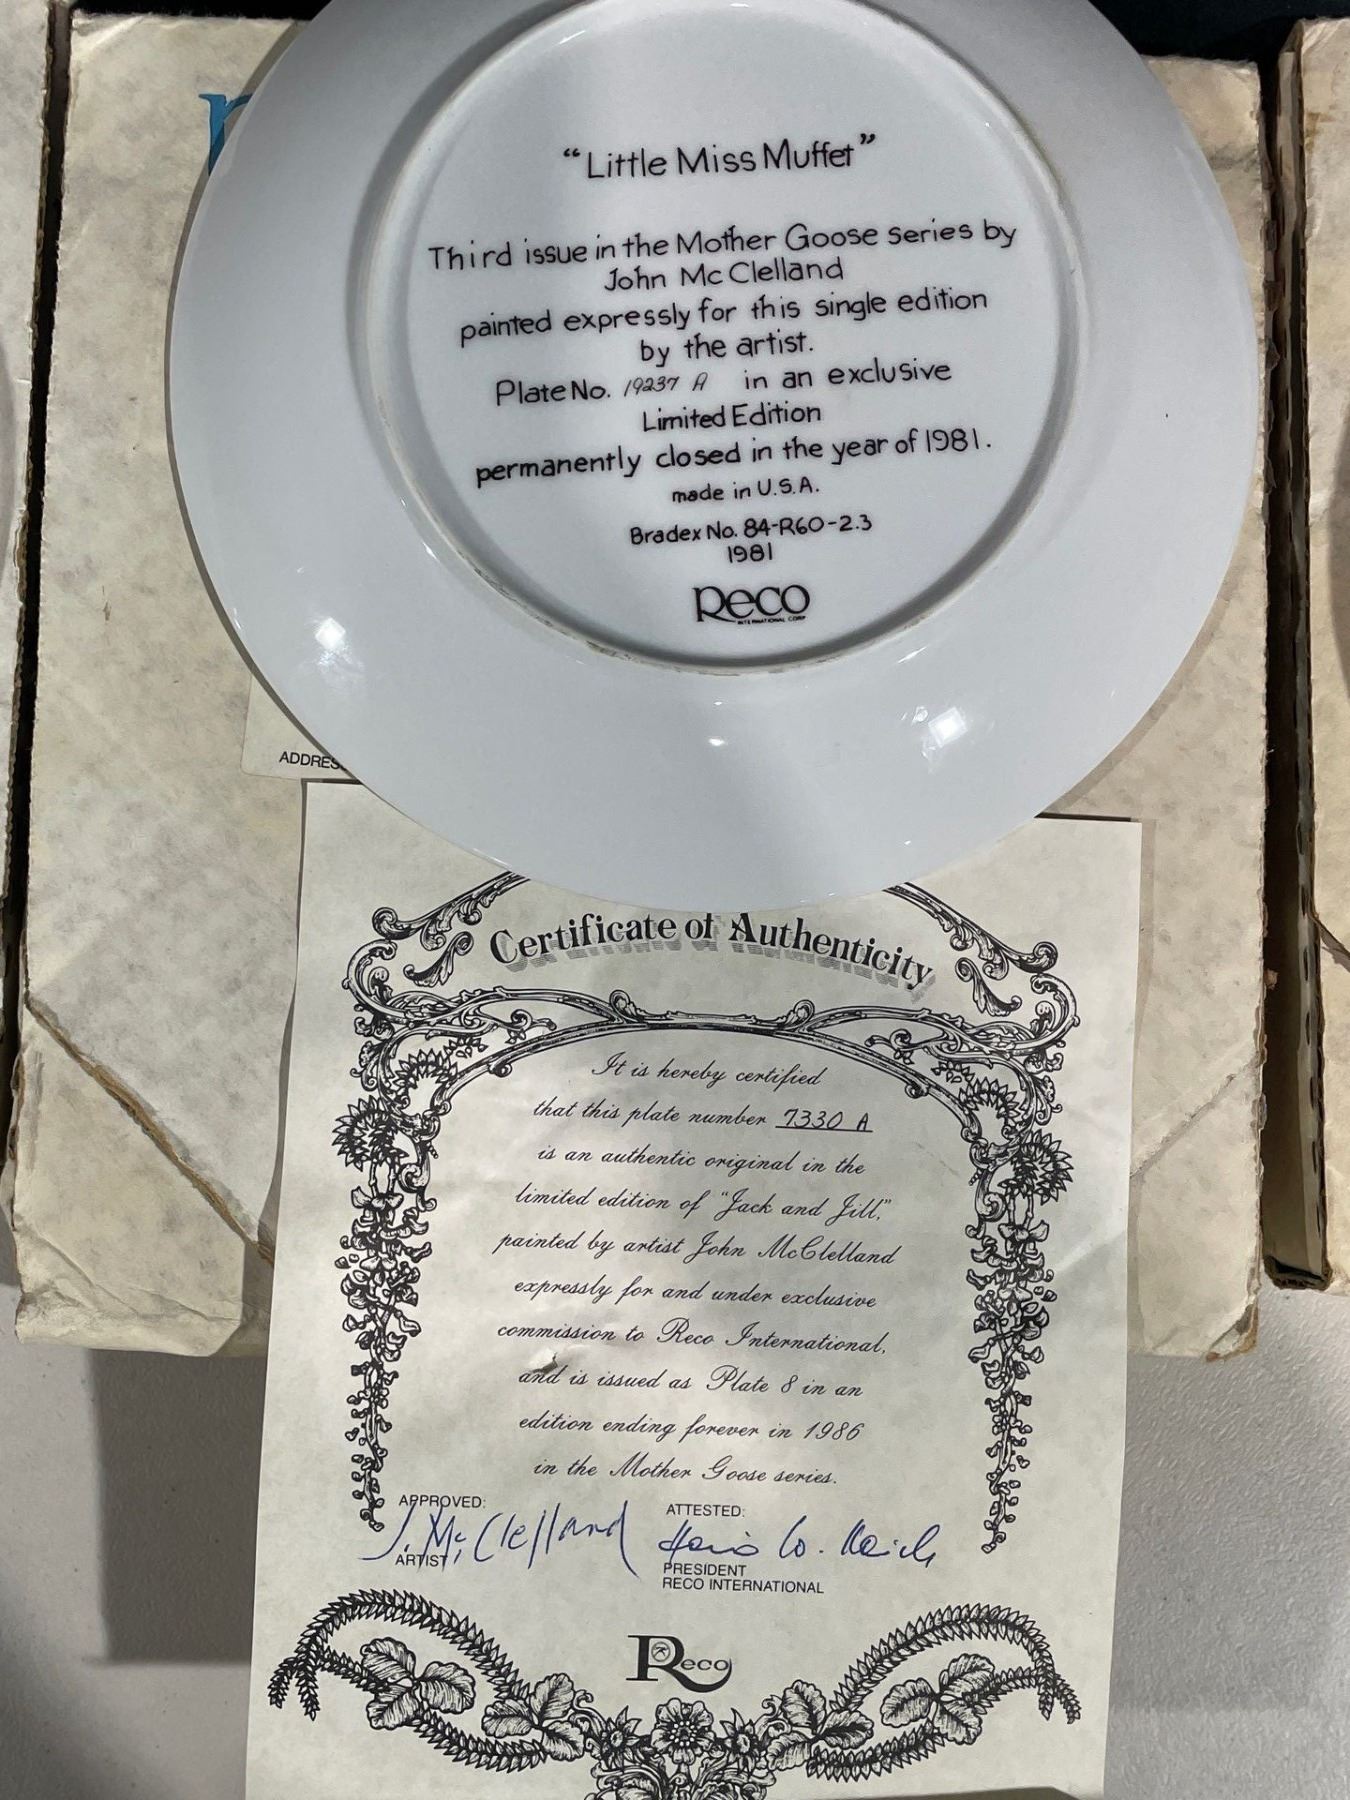 “Little Miss Muffet”
Third issue in the Mother Goose series by
John McClelland
painted expressly for this single edition
by the artist.
Plate No. 19237 A in an exclusive
Limited Edition
permanently closed in the year of 1981.
made in U.S.A.
Bradex No. 84-R60-2.3
1981
Reco
INTERNATIONAL CORP
Certificate of Authenticity
It is hereby certified
that this plate number 7330 A
is an authentic original in the
limited edition of “Jack and Jill,”
painted by artist John McClelland
expressly for and under exclusive
commission to Reco International,
and is issued as Plate 8 in an
edition ending forever in 1986
in the Mother Goose series.
APPROVED:
J. McClelland
ARTIST
ATTESTED:
PRESIDENT
RECO INTERNATIONAL
Reco